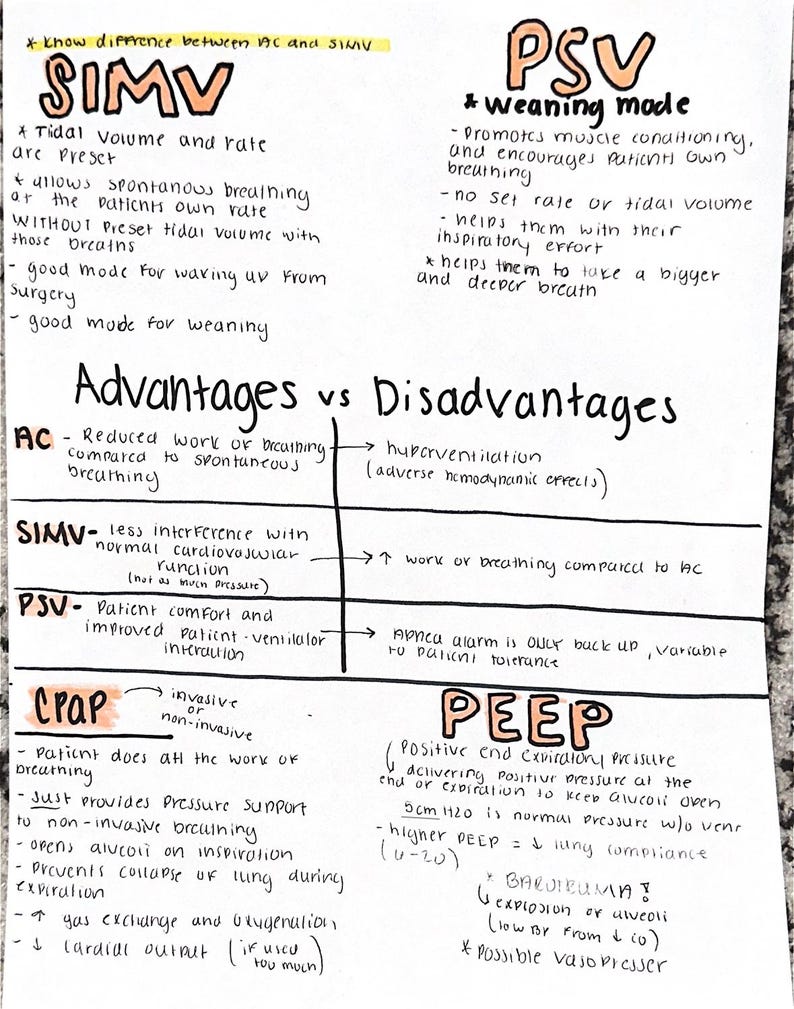 * Know difference between AC and SIMV
SIMV
* Tidal volume and rate
are preset
* allows spontanous breathing
at the patients own rate
WITHOUT preset tidal volume with
those breaths
- good mode for waking up from
surgery
- good mode for weaning
PSV
* Weaning mode
- Promotes muscle conditioning,
and encourages patients own
breathing
- no set rate or tidal volume
- helps them with their
inspiratory effort
* helps them to take a bigger
and deeper breath
Advantages vs Disadvantages
AC - Reduced work of breathing → hyperventilation
compared to spontaneous (adverse hemodynamic effects)
breathing
SIMV - less interference with
normal cardiovascular → ↑ work of breathing compared to AC
function
(not as much pressure)
PSV - Patient comfort and
improved patient-ventilator → Apnea alarm is ONLY back up, variable
interaction to patient tolerance
CPAP → invasive
or
non-invasive
- patient does all the work of
breathing
- Just provides pressure support
to non-invasive breathing
- opens alveoli on inspiration
- prevents collapse of lung during
expiration
- ↑ gas exchange and oxygenation
- ↓ cardiac output (if used
too much)
PEEP
Positive end expiratory pressure
↳ delivering positive pressure at the
end of expiration to keep alveoli open
5cm H2O is normal pressure w/o vent
- higher PEEP = ↓ lung compliance
* !
↳ explosion of alveoli
(low BP from ↓ CO)
* possible vasopresser